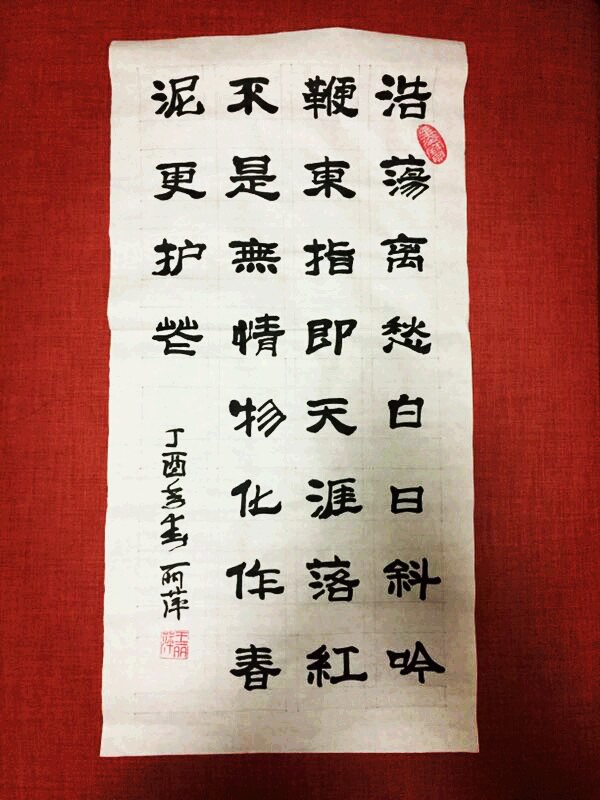 浩蕩离愁白日斜吟
鞭東指即天涯落紅
不是無情物化作春
泥更护花
丁酉 丽萍
王丽萍